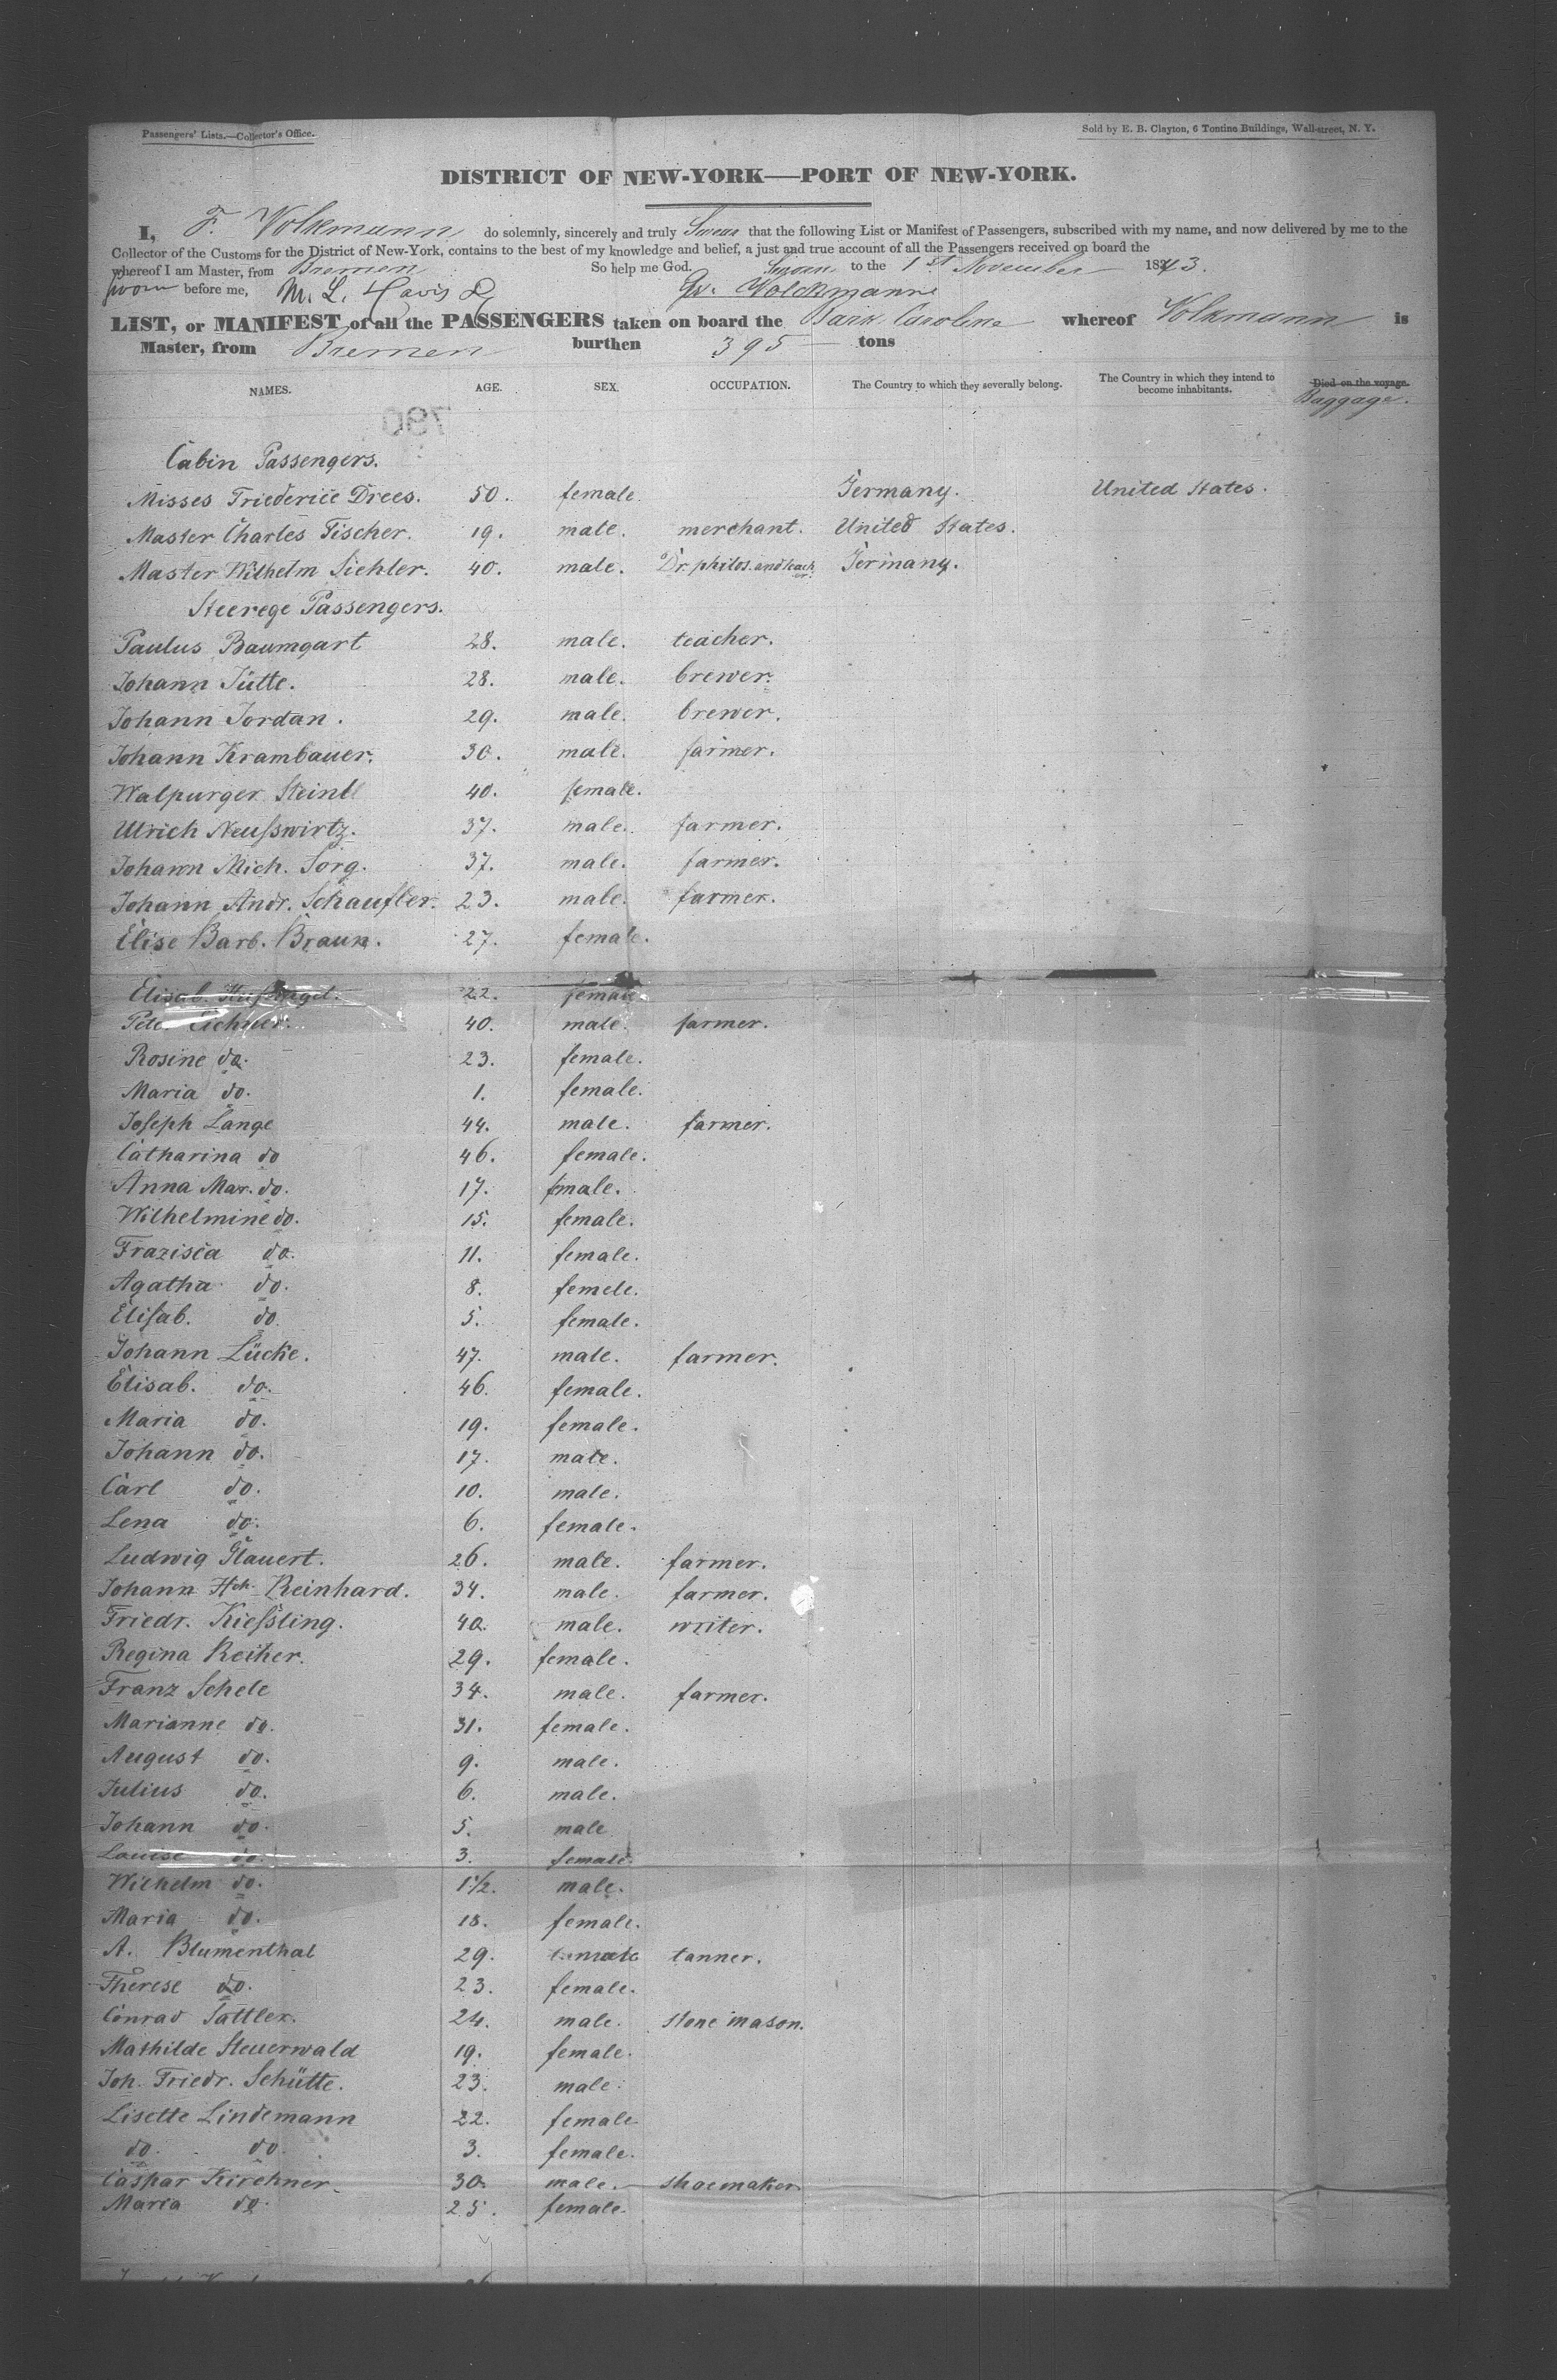 Passengers' Lists.—Collector's Office.
Sold by E. B. Clayton, 6 Tontine Buildings, Wall-street, N. Y.
DISTRICT OF NEW-YORK—PORT OF NEW-YORK.
I, F. Volkmann do solemnly, sincerely and truly Swear that the following List or Manifest of Passengers, subscribed with my name, and now delivered by me to the
Collector of the Customs for the District of New-York, contains to the best of my knowledge and belief, a just and true account of all the Passengers received on board the
whereof I am Master, from Bremen So help me God. Sworn to the 1st November 1843.
Sworn before me, M. L. Davis Volckmann
LIST, or MANIFEST of all the PASSENGERS taken on board the Bark Caroline whereof Volkmann is
Master, from Bremen burthen 395 tons
NAMES. AGE. SEX. OCCUPATION. The Country to which they severally belong. The Country in which they intend to become inhabitants. Died on the voyage.
Baggage.
790
Cabin Passengers.
Misses Friederice Drees. 50. female Germany. United States.
Master Charles Fischer. 19. male. merchant. United States.
Master Wilhelm Siehler. 40. male. Dr. philos. and teacher. Germany.
Steerege Passengers.
Paulus Baumgart 28. male. teacher.
Johann Jütte. 28. male. brewer.
Johann Jordan. 29. male. brewer.
Johann Krambauer. 30. male. farmer.
Walpurger Steinl 40. female.
Ulrich Neuſswirtz. 37. male. farmer.
Johann Mich. Sorg. 37. male. farmer.
Johann Andr. Schaufler. 23. male. farmer.
Elise Barb. Braun. 27. female.
Elisab. 22. female
Peter Eichner. 40. male. farmer.
Rosine do. 23. female.
Maria do. 1. female.
Joſeph Lange 44. male. farmer.
Catharina do 46. female.
Anna Mar. do. 17. fmale.
Wilhelmine do. 15. female.
Frazisca do. 11. female.
Agatha do. 8. femele.
Eliſab. do. 5. female.
Johann Lücke. 47. male. farmer.
Elisab. do. 46. female.
Maria do. 19. female.
Johann do. 17. male.
Carl do. 10. male.
Lena do. 6. female.
Ludwig Glauert. 26. male. farmer.
Johann Hch. Reinhard. 34. male. farmer.
Friedr. Kieſsling. 40. male. writer.
Regina Reiher. 29. female.
Franz Schele 34. male. farmer.
Marianne do. 31. female.
August do. 9. male.
Julius do. 6. male.
Johann do. 5. male
Louise do. 3. female.
Wilhelm do. 1½. male.
Maria do. 18. female.
A. Blumenthal 29. male tanner.
Therese do. 23. female.
Conrad Sattler. 24. male. stone mason.
Mathilde Steuerwald 19. female.
Joh. Friedr. Schütte. 23. male.
Lisette Lindemann 22. female
do. do. 3. female.
Caspar Kirchner. 30. male. shoemaker
Maria do. 25. female.